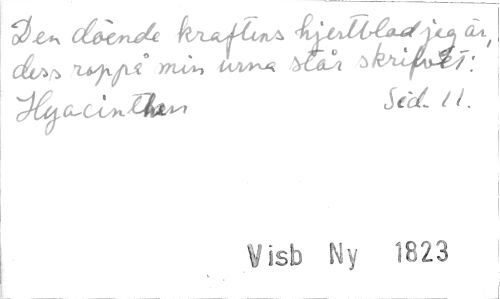 Den döende kraftens hjertblad jeg är,
dess roppå min urna står skrifvet:
Hyacinthen Sid. 11.
Visb Ny 1823